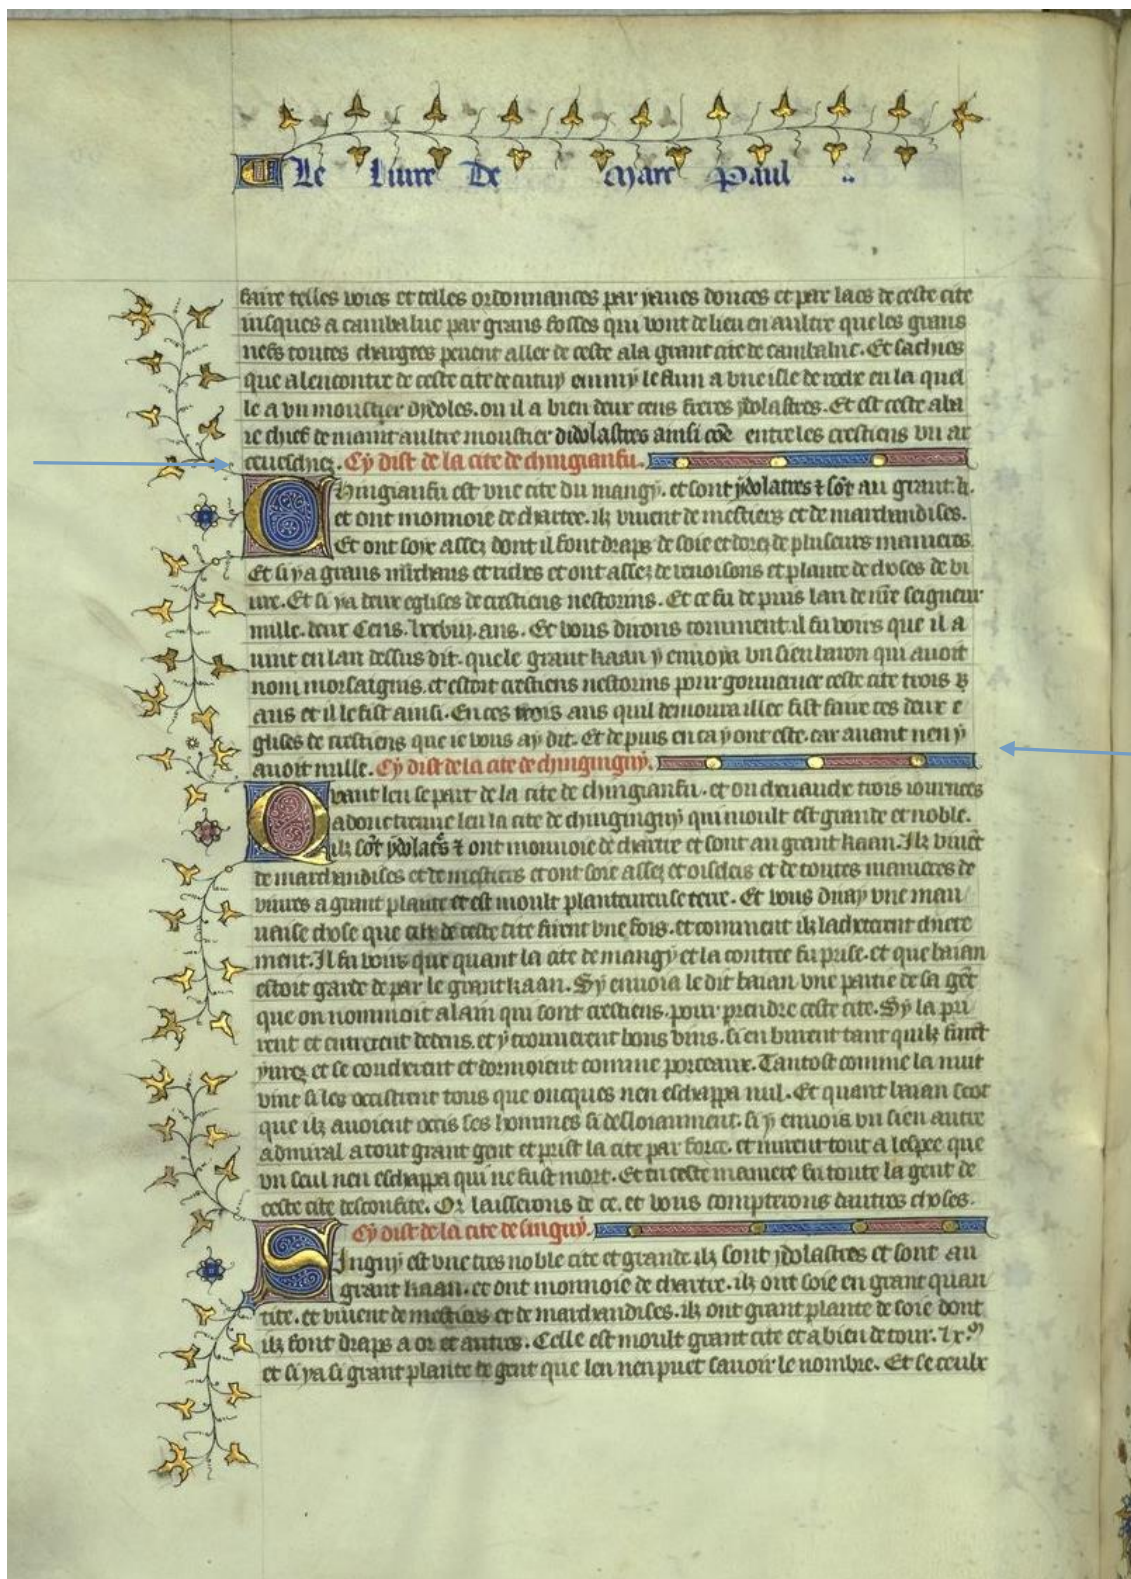 Le Liure De Marc Paul
faire telles voies et telles ordonnances par yaues douces et par lacs de ceste cite
iusques a cambaluc par grans fosses qui vont de lieu en aultre que les grans
nefs toutes chargees peuent aller de ceste ala grant cite de cambaluc. Et sachies
que alencontre de ceste cite de cuiuy emmy le flun a vne isle de roche en la quel
le a vn moustier dydoles. ou il a bien deux cens freres ydolastres. Et est ceste aba
ie chief de maint aultre moustier didolastres ainsi cōe entre les crestiens vn ar
ceueschez. Cy dist de la cite de chingianfu.
Chingianfu est vne cite du mangy. et sont ydolatres ⁊ sōt au grant. k.
et ont monnoie de chartre. ilz viuent de mestiers et de marchandises.
Et ont soye assez dont il font draps de soie et dorez de pluseurs manieres
Et si ya grans m̄chans et riches et ont assez de venoisons et plante de choses de vi
ure. Et si ya deux eglises de crestiens nestorins. Et ce fu de puis lan de nr̄e seigneur
mille. deux Cens. lxxviij. ans. Et vous dirons comment il fu voirs que il a
uint en lan dessus dit. que le grant kaan y enuoya vn sien baron qui auoit
nom morsaigius. et estoit crestiens nestorins pour gouuerner ceste cite trois
ans et il le fist ainsi. En ces trois ans quil demoura illec fist faire ces deux e
glises de crestiens que ie vous ay dit. Et de puis en ca y ont este. car auant nen y
auoit nulle. Cy dist de la cite de chinginguy.
Quant len se part de la cite de chingianfu. et on cheuauche trois iournees
adonc treuue len la cite de chinginguy qui moult est grande et noble.
ilz sōt ydolat̄s ⁊ ont monnoie de chartre et sont au grant kaan. Ilz viuēt
de marchandises et de mestiers et ont soie assez et oiseleis et de toutes manieres de
viures a grant plante et est moult planteureuse terre. Et vous diray vne mau
uaise chose que cilz de ceste cite firent vne fois. et comment ilz lachetterent chiere
ment. Il fu voirs que quant la cite de mangy et la contree fu prise. et que baian
estoit garde de par le grant kaan. Sy enuoia le dit baian vne partie de sa gēt
que on nommoit alain qui sont crestiens. pour prendre ceste cite. Sy la pri
rent et entrerent dedens. et y trouuerent bons vins. si en burent tant quilz furēt
yurez et se coucherent et dormoient comme porceaux. Tantost comme la nuit
vint si les occistrent tous que oncques nen eschappa nul. Et quant baian scot
que ilz auoient occis ses hommes si desloiaument. si y enuoia vn sien autre
admiral atout grant gent et prist la cite par force. et mirent tout a lespee que
vn seul nen eschappa qui ne fust mort. Et en ceste maniere fu toute la gent de
ceste cite desconfite. Or laisserons de ce. et vous compterons dautres choses.
Cy dist de la cite de singuy.
Singuy est vne tres noble cite et grande. ilz sont ydolastres et sont au
grant kaan. et ont monnoie de chartre. ilz ont soie en grant quan
tite. et viuent de mestiers et de marchandises. ilz ont grant plante de soie dont
ilz font draps a or et autres. Celle est moult grant cite et a bien de tour. lx.
et si ya si grant plante de gent que len nen puet sauoir le nombre. Et se ceulx